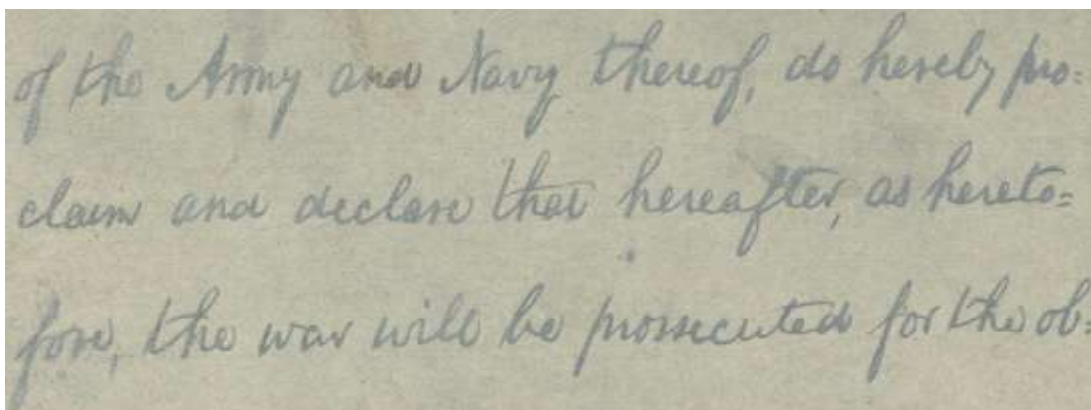 of the Army and Navy thereof, do hereby pro=
claim and declare that hereafter, as hereto=
fore, the war will be prossecuted for the ob